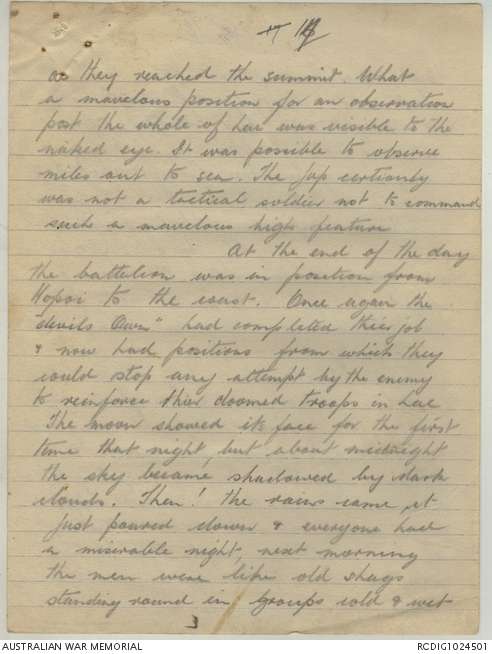 14
as they reached the summit. What
a mavelous position for an observation
post the whole of Lae was visible to the
naked eye. It was possible to observe
miles out to sea. The Jap certionly
was not a tactical soldier not to command
such a mavelous high feature
At the end of the day
the battelion was in position from
Hopoi to the coast. Once again the
"devils Own" had completed thier job
& now had positions from which they
could stop any attempt by the enemy
to reinforce thier doomed troops in Lae
The moon showed its face for the first
time that night, but about midnight
the sky became shadowed by dark
clouds. Then! the rains came, it
just poured down & everyone had
a miserable night, next morning
the men were like old shags
standing round in groups cold & wet
3
AUSTRALIAN WAR MEMORIAL
RCDIG1024501